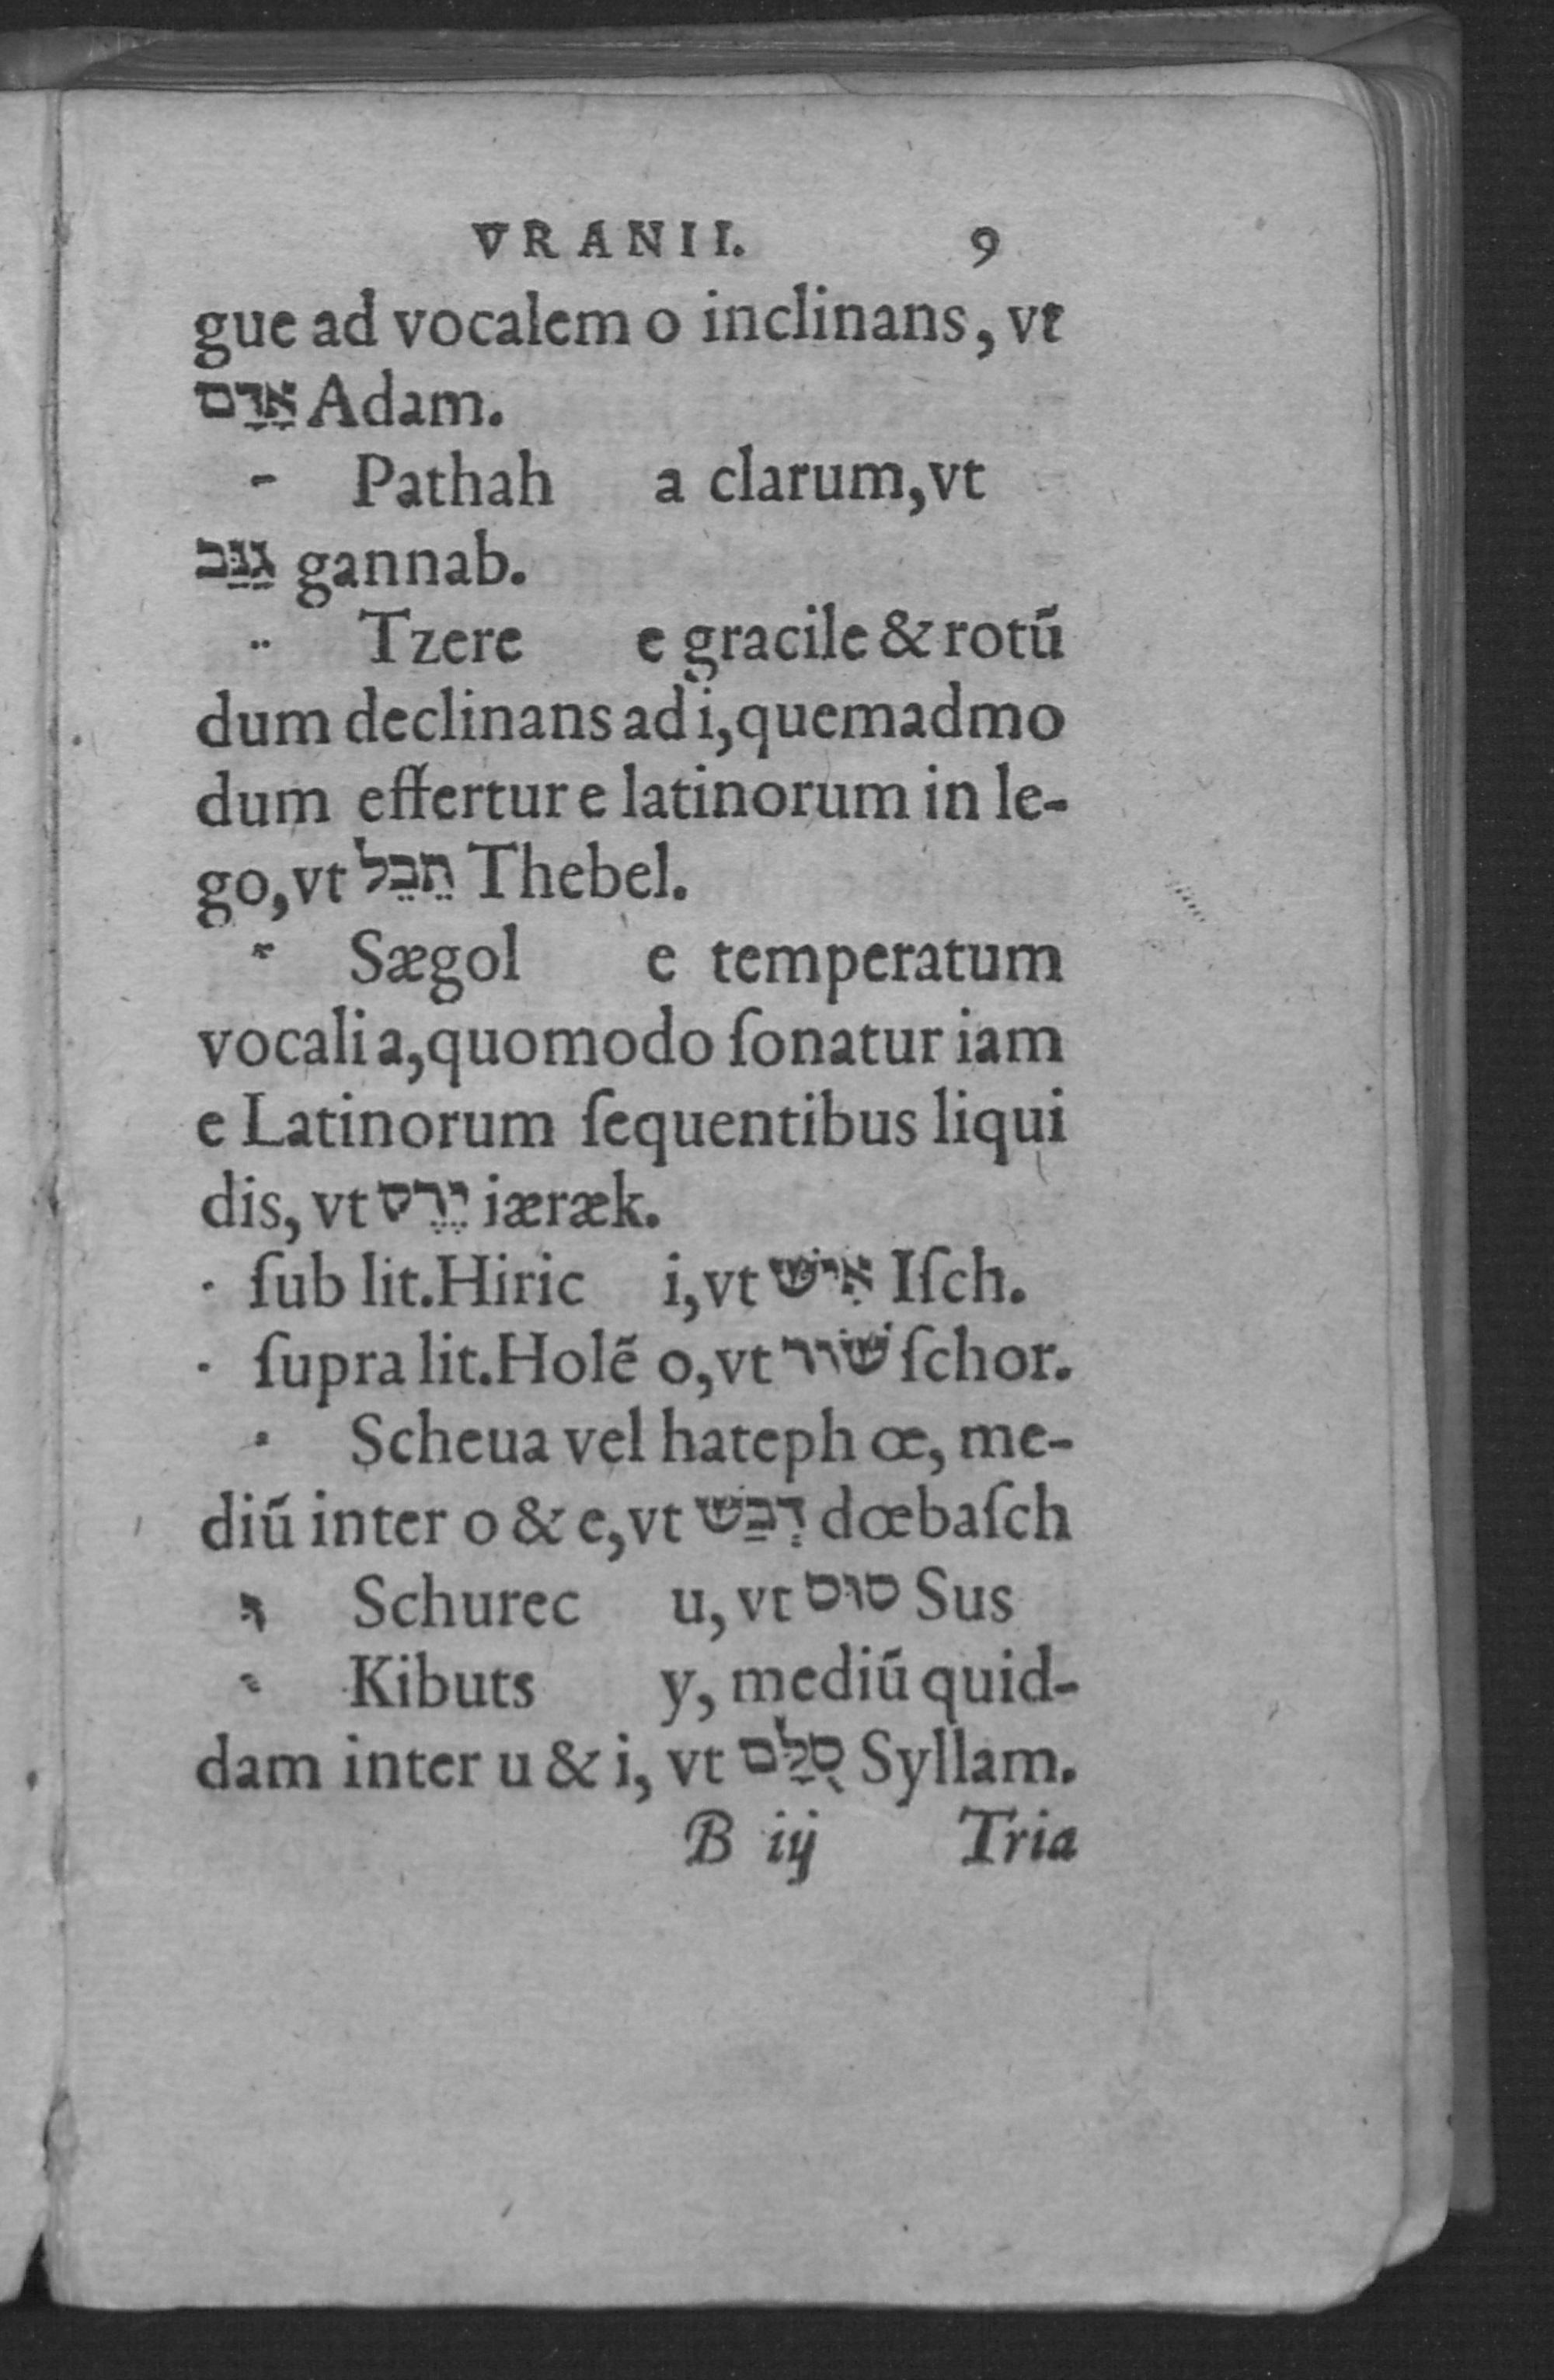 VRANII. 9
gue ad vocalem o inclinans, vt
אָדָם Adam.
ַ Pathah a clarum, vt
גַנַּב gannab.
ֵ Tzere e gracile & rotũ
dum declinans ad i, quemadmo
dum effertur e latinorum in le-
go, vt תֵבֵל Thebel.
ֶ Sægol e temperatum
vocali a, quomodo ſonatur iam
e Latinorum ſequentibus liqui
dis, vt יֶרֶק iæræk.
· ſub lit. Hiric i, vt אִישׁ Iſch.
· ſupra lit. Holẽ o, vt שׁוֹר ſchor.
ְ Scheua vel hateph œ, me-
diũ inter o & e, vt דְבַשׁ dœbaſch
וּ Schurec u, vt סוּס Sus
ֻ Kibuts y, mediũ quid-
dam inter u & i, vt סֻלַּם Syllam.
B iij Tria